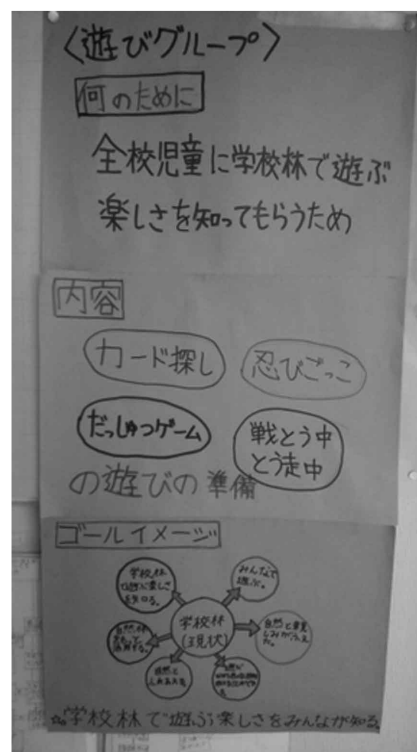 〈遊びグループ〉
何のために
全校児童に学校林で遊ぶ
楽しさを知ってもらうため
内容
カード探し
忍びごっこ
だっしゅつゲーム
戦とう中
とう走中
の遊びの準備
ゴールイメージ
学校林
で遊ぶ楽しさ
を知る。
みんなで
遊ぶ。
学校林
(現状)
自然と
☆学校林で遊ぶ楽しさをみんなが知る。